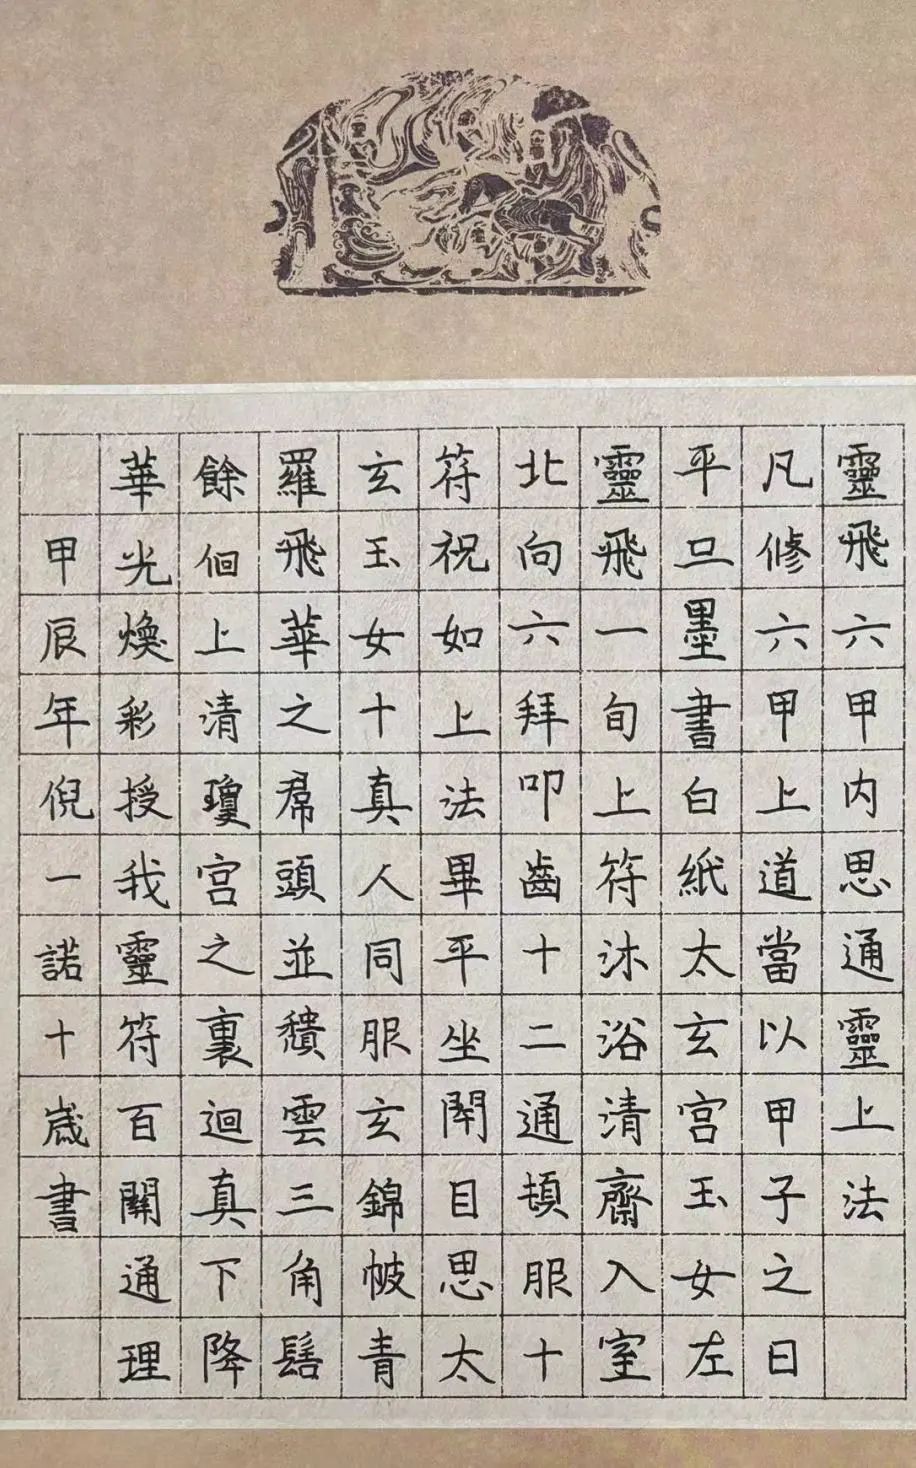 靈飛六甲内思通靈上法
凡修六甲上道當以甲子之日
平旦墨書白紙太玄宮玉女左
靈飛一旬上符沐浴清齋入室
北向六拜叩齒十二通頓服十
符祝如上法畢平坐閇目思太
玄玉女十真人同服玄錦帔青
羅飛華之帬頭並頽雲三角髻
餘佪上清瓊宮之裏迴真下降
華光煥彩授我靈符百關通理
甲辰年倪一諾十歲書